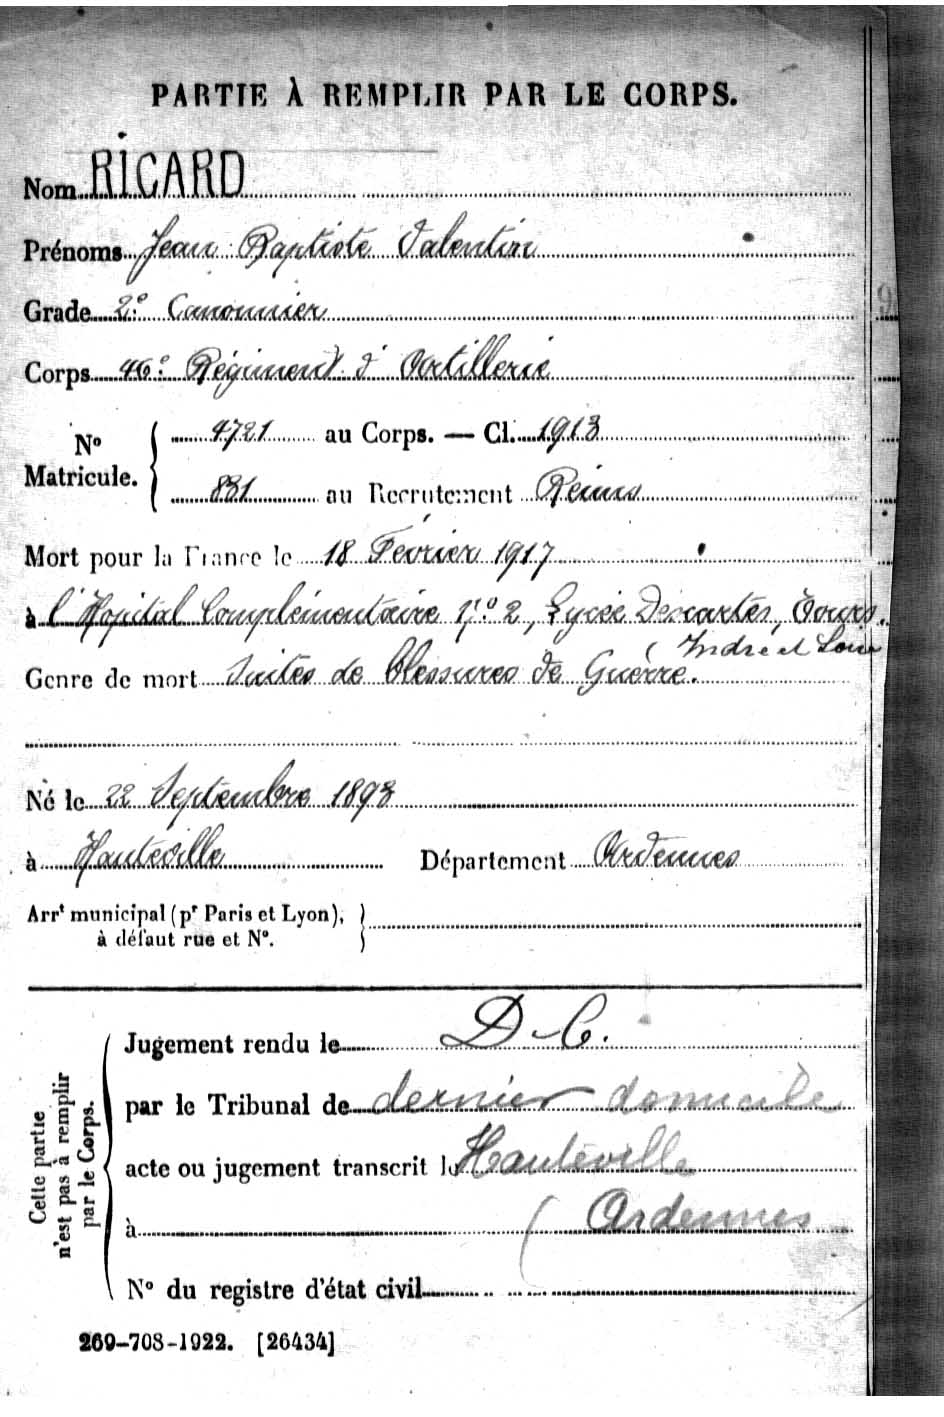 PARTIE À REMPLIR PAR LE CORPS.
Nom RICARD
Prénoms Jean Baptiste Valentin
Grade 2e Canonnier
Corps 46e Régiment d'Artillerie
No Matricule. 4721 au Corps. — Cl. 1913
831 au Recrutement Reims
Mort pour la France le 18 Février 1917
à l'Hopital Complémentaire no 2, Lycée Descartes, Tours.
( Indre et Loire
Genre de mort Suites de blessures de Guerre.
Né le 22 Septembre 1893
à Hauteville Département Ardennes
Arrt municipal (pr Paris et Lyon),
à défaut rue et No.
Cette partie
n'est pas à remplir
par le Corps.
Jugement rendu le D-C.
par le Tribunal de dernier domicile
acte ou jugement transcrit le Hauteville
à ( Ardennes
No du registre d'état civil
269-708-1922. [26434]